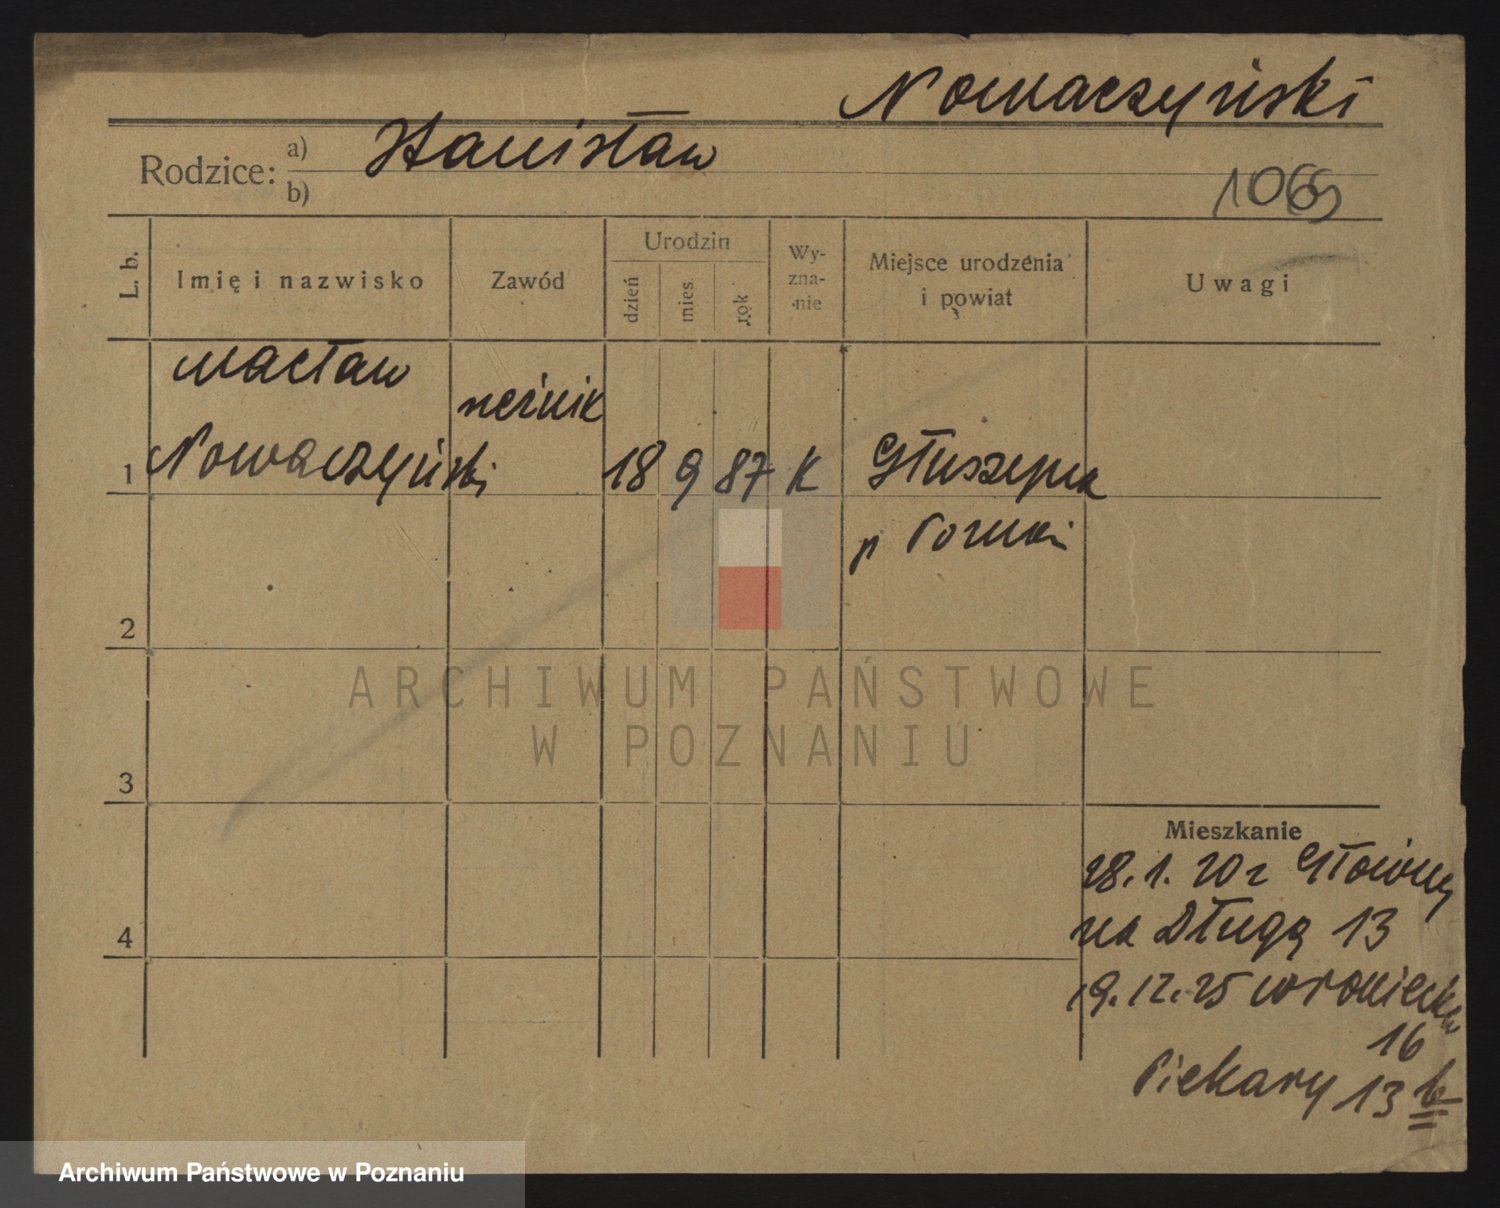 Nowaczyński
Rodzice: a) Stanisław
b)
1069
L. b.
Imię i nazwisko
Zawód
Urodzin
dzień
mies.
rok
Wy-
zna-
nie
Miejsce urodzenia
i powiat
Uwagi
wacław
rzeźnik
1 Nowaczyński 18 9 87 K Głuszyna
p Poznań
2
3
4
Mieszkanie
28.1.20 r Główny
na Długą 13
19.12.25 wroniecka
16
Piekary 13 b
ARCHIWUM PAŃSTWOWE
W POZNANIU
Archiwum Państwowe w Poznaniu